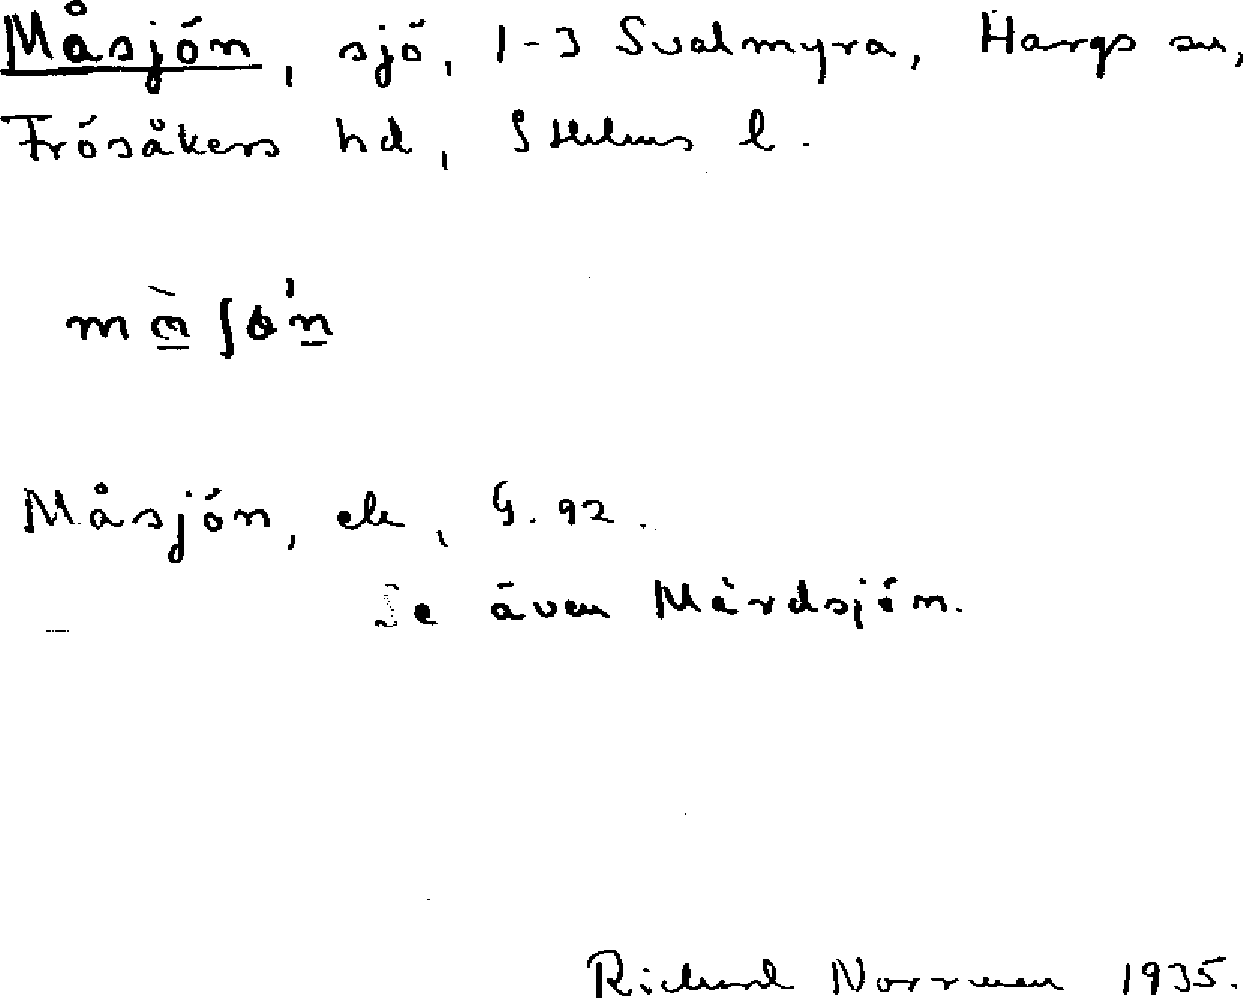 Måsjön, sjö, 1-3 Svalmyra, Hargs sn,
Frösåkers hd, Sthlms l.
Måsjön, ek, G. 92.
Se även Mårdsjön.
Richard Norrman 1935.